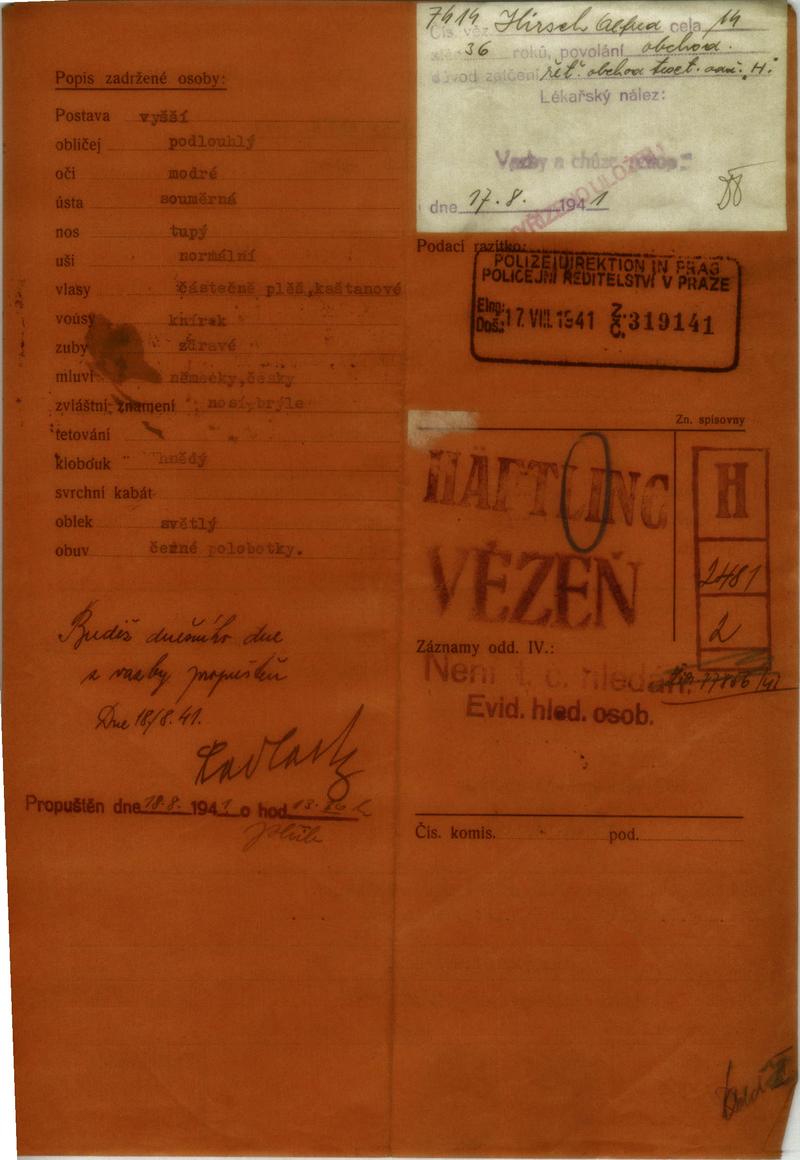 Popis zadržené osoby:
Postava vyšší
obličej podlouhlý
oči modré
ústa souměrná
nos tupý
uši normální
vlasy částečně pleš,kaštanové
vousy knírek
zuby zdravé
mluví německy,česky
zvláštní znamení nosí brýle
tetování
klobouk hnědý
svrchní kabát
oblek světlý
obuv černé polobotky.
Budiž dnešního dne
z vazby propuštěn
Dne 18/8.41.
Propuštěn dne 18.8. 1941 o hod 13.
7414 Hirsch Alfred cela 14
Čís. věz.
36 roků, povolání obchod.
důvod zatčení řet. obchod text. H.
Lékařský nález:
Vazby a chůze
dne 17.8. 1941
VYŘÍZENO ULOŽITI
Podací razítko:
POLIZEIDIREKTION IN PRAG
POLICEJNÍ ŘEDITELSTVÍ V PRAZE
Eing:
Doš.: 17. VIII. 1941 Z. Č. 319141
Zn. spisovny
HÄFTLING
VĚZEŇ
H
2481
2
Záznamy odd. IV.:
Není t. č. hledán.
Evid. hled. osob.
Čís. komis. pod.